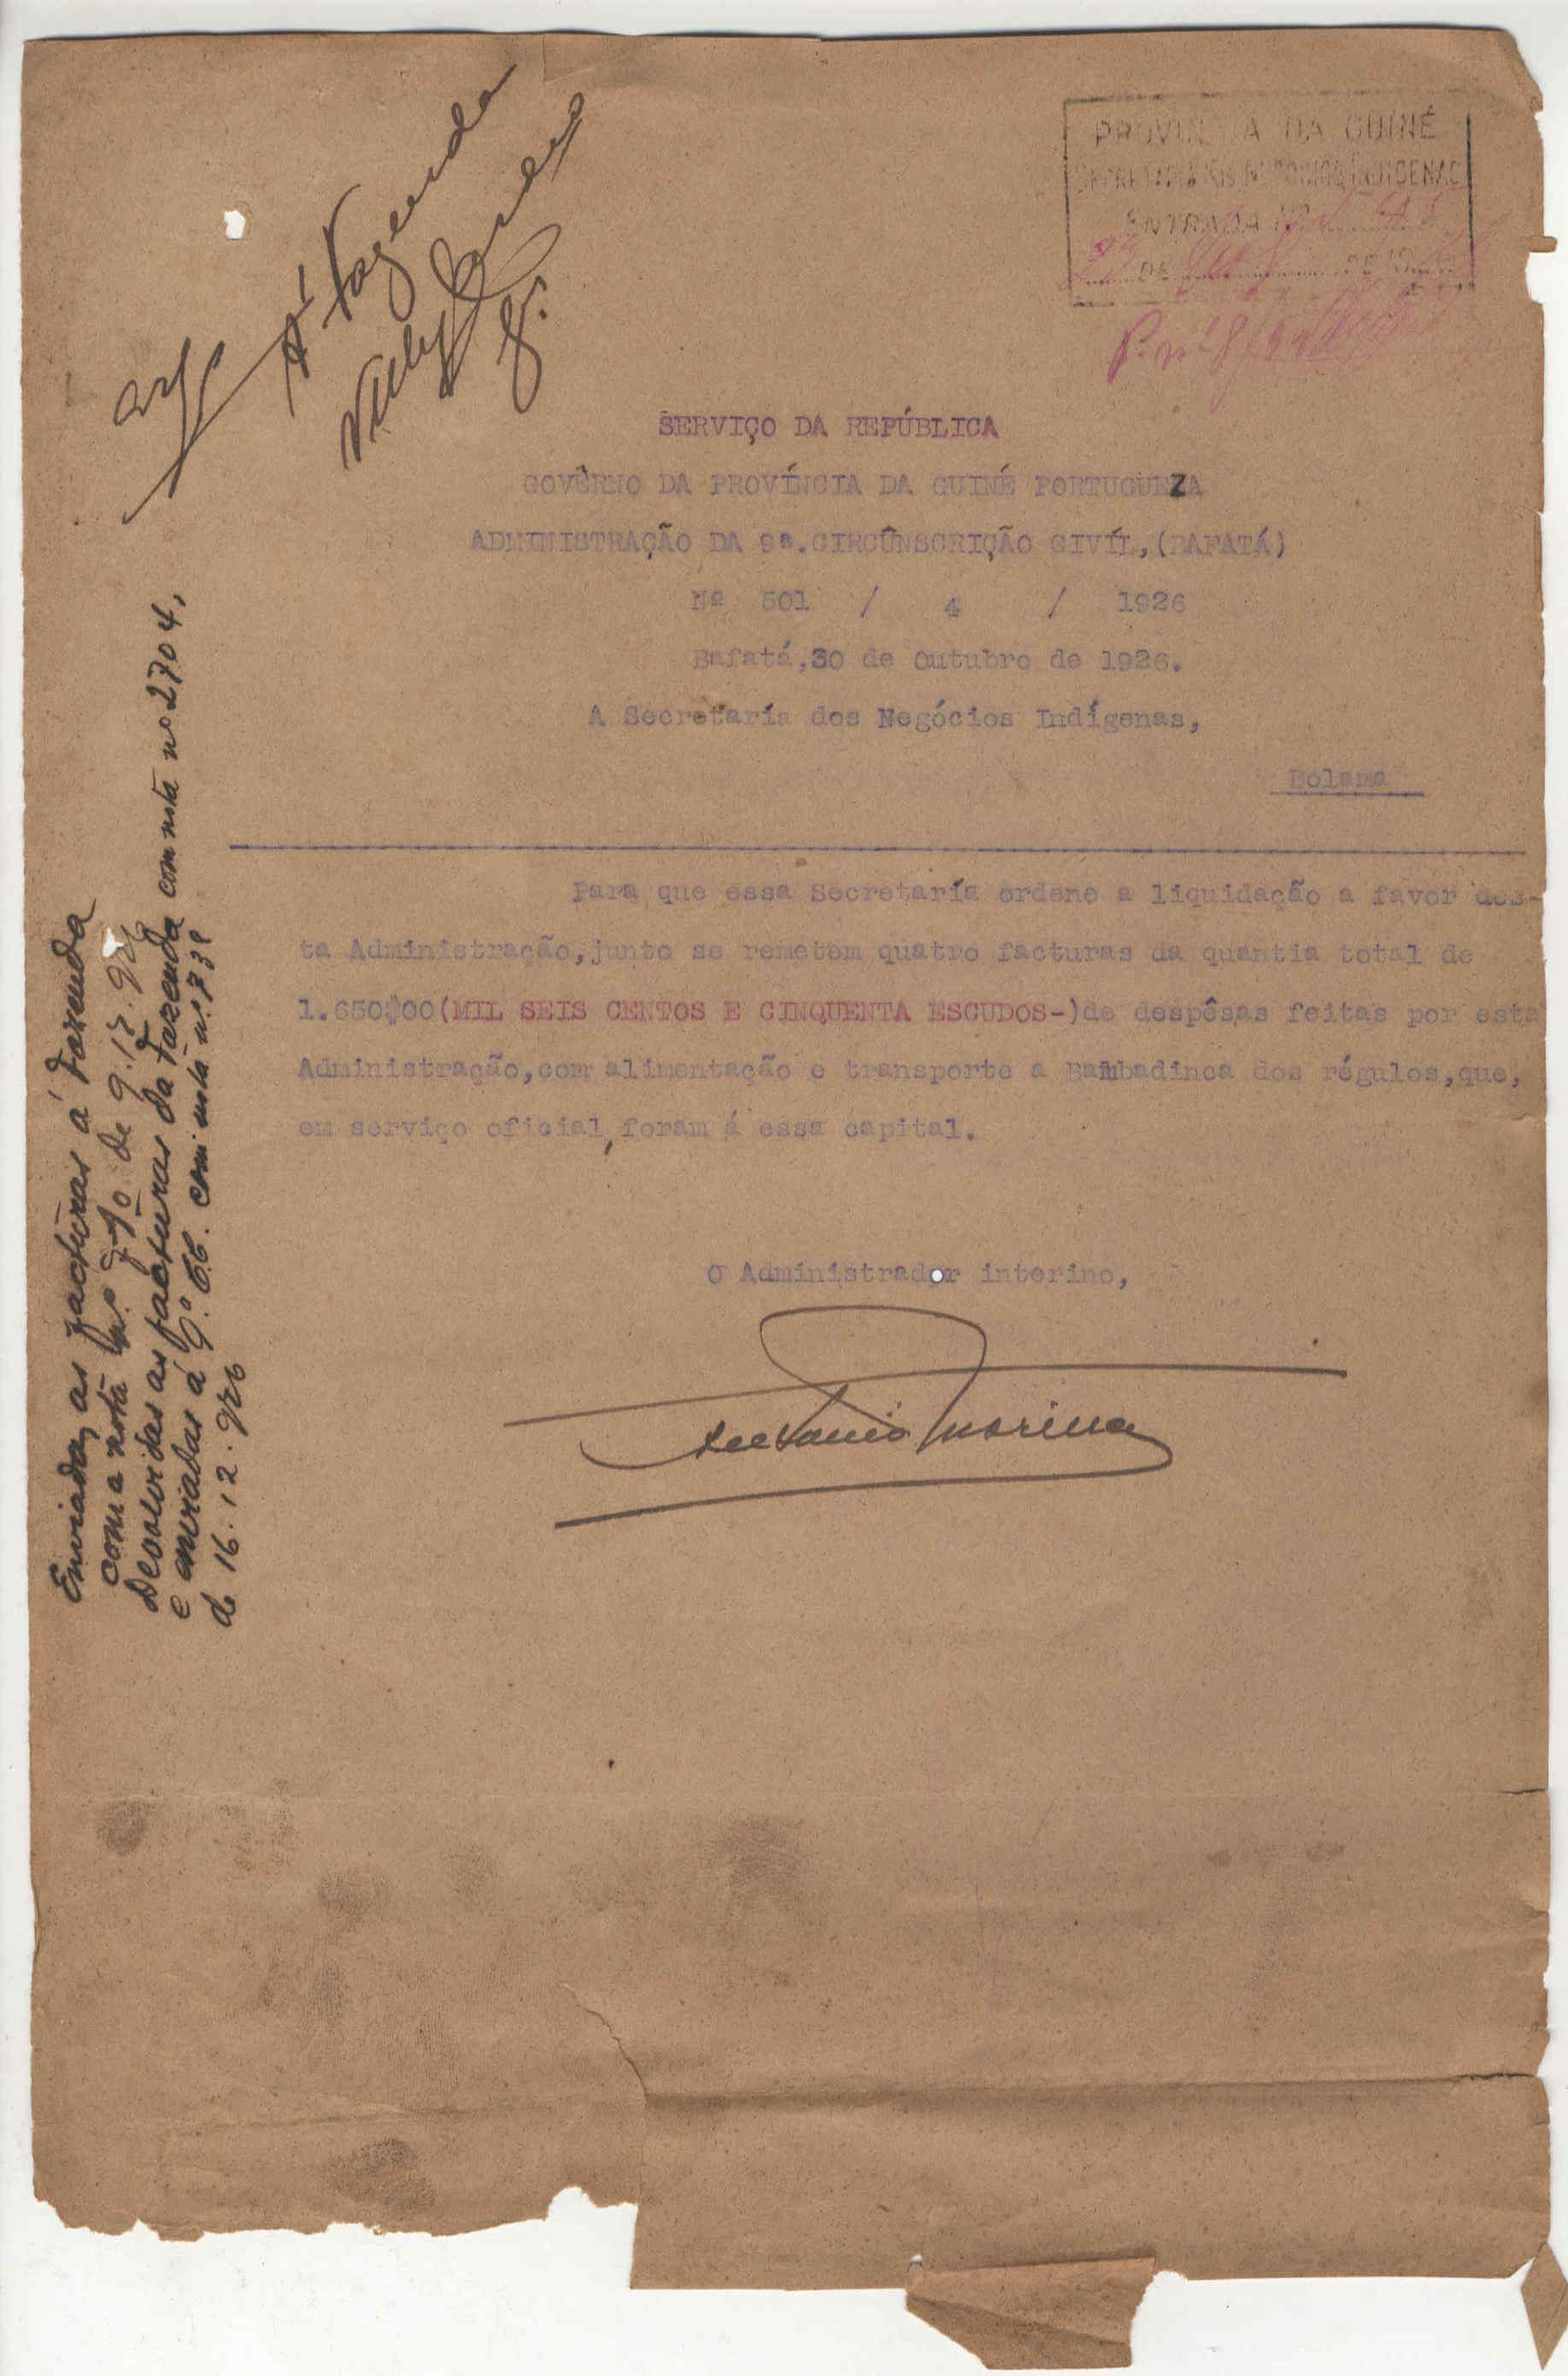 PROVINCIA DA GUINÉ
SECRETARIA DOS NEGOCIOS INDIGENAS
ENTRADA Nº
DE DE 19
Á Fazenda
SERVIÇO DA REPÚBLICA
GOVÊRNO DA PROVÍNCIA DA GUINÉ PORTUGUEZA
ADMINISTRAÇÃO DA 9ª.CIRCÛNSCRIÇÃO CIVÍL,(BAFATÁ)
Nº 501 / 4 / 1926
Bafatá,30 de Outubro de 1926.
A Secretaría dos Negócios Indígenas,
Bolama
Para que essa Secretaría ordene a liquidação a favor des-
ta Administração,junto se remetem quatro facturas da quantia total de
1.650$00(MIL SEIS CENTOS E CINQUENTA ESCUDOS-)de despêsas feitas por esta
Administração,com alimentação e transporte a Bambadinca dos régulos,que,
em serviço oficial, foram á essa capital.
O Administrador interino,
Enviadas as facturas á Fazenda
com a nota nº 710 de 9.12.926
Devolvidas as facturas da Fazenda com nota nº 2704,
e enviadas á 9ª C.C. com nota nº 738
de 16.12.926